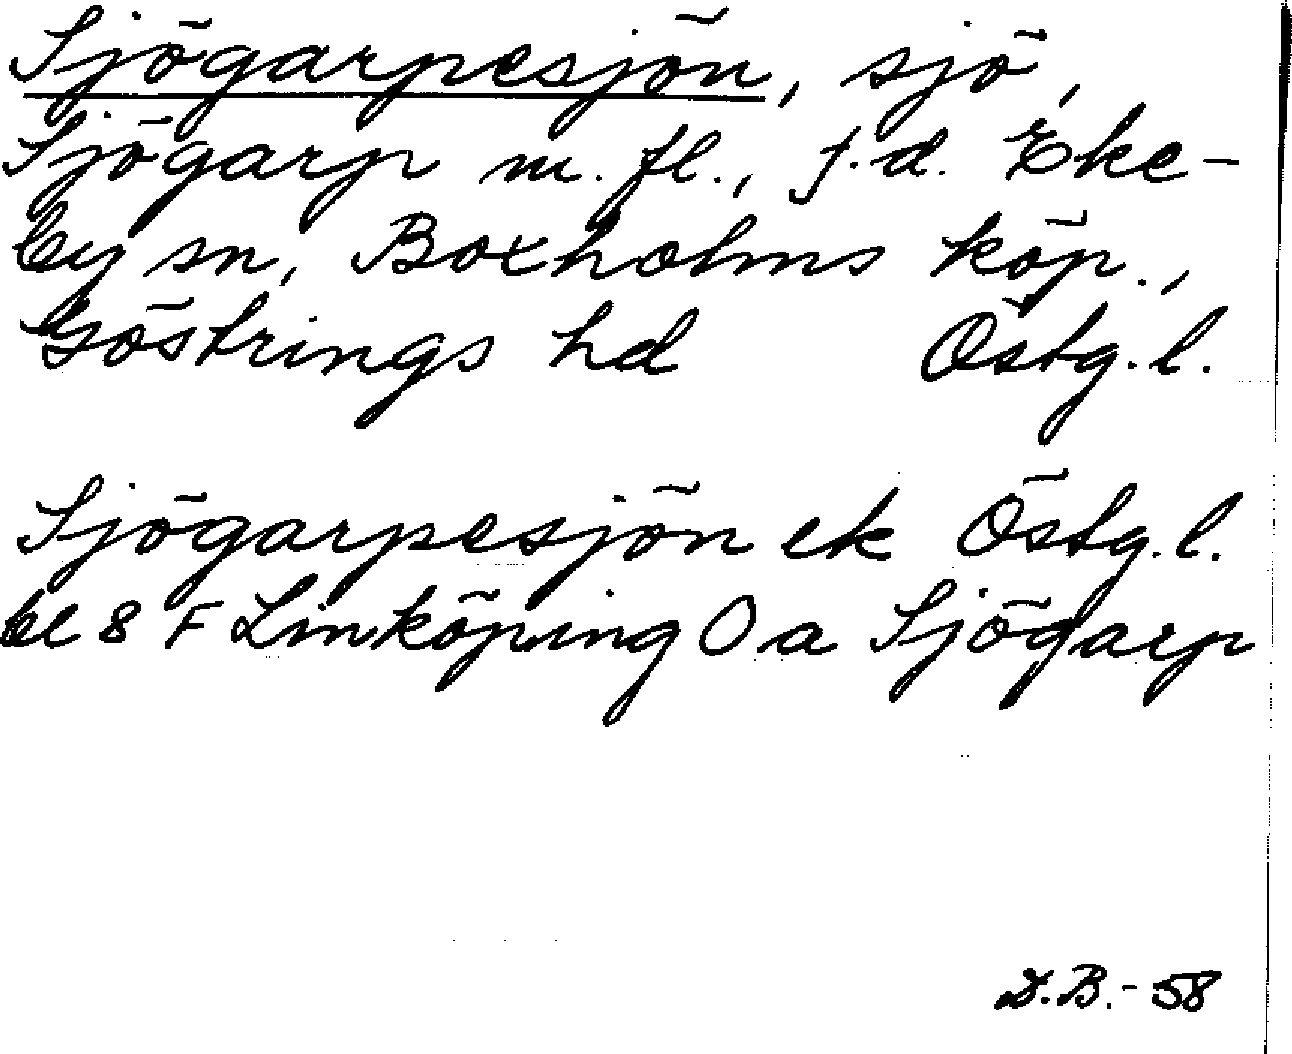 Sjögarpesjön, sjö,
Sjögarp m. fl., f.d. Eke-
by sn, Boxholms köp.,
Göstrings hd Östg. l.
Sjögarpesjön ek Östg. l.
bl 8 F Linköping O a Sjögarp
D.B.-58